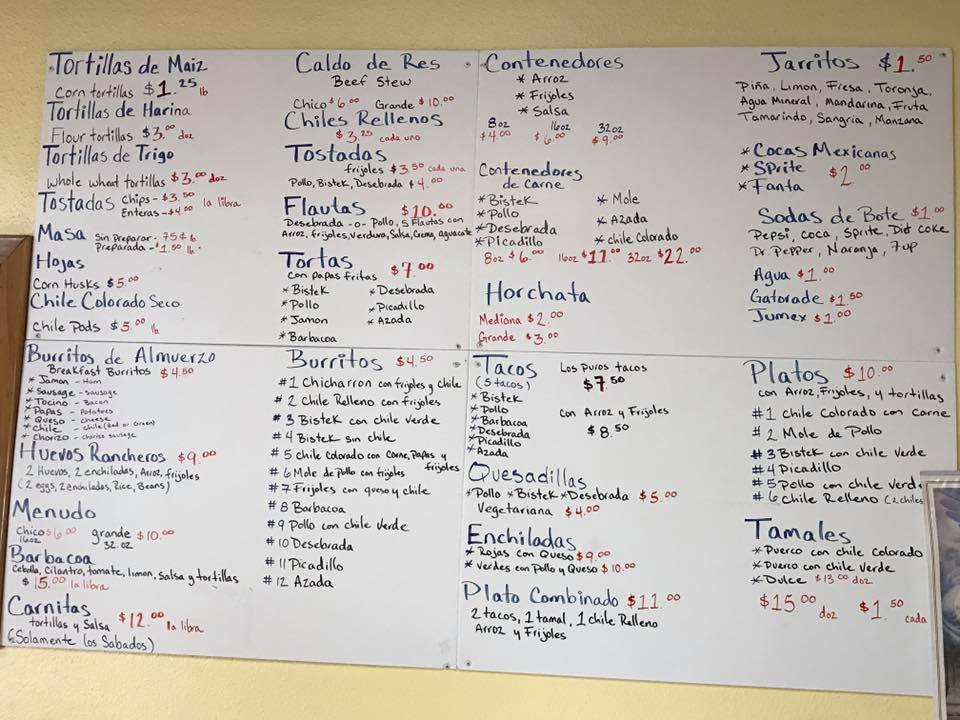 Tortillas de Maiz
Corn tortillas $1.25 lb
Tortillas de Harina
Flour tortillas $3.00 doz
Tortillas de Trigo
Whole wheat tortillas $3.00 doz
Tostadas Chips - $3.50 la libra
Enteras - $4.00
Masa Sin Preparar - 75¢ lb
Preparada - $1.50 lb
Hojas
Corn Husks $5.00
Chile Colorado Seco
Chile Pods $5.00 lb
Caldo de Res
Beef Stew
Chico $6.00 Grande $10.00
Chiles Rellenos
$3.25 cada uno
Tostadas
frijoles $3.50 cada una
Pollo, Bistek, Desebrada $4.00
Flautas $10.00
Desebrada -o- Pollo, 5 Flautas con
Arroz, frijoles, Verdura, Salsa, Crema, aguacate
Tortas $7.00
con papas fritas
* Bistek * Desebrada
* Pollo * Picadillo
* Jamon * Azada
* Barbacoa
Contenedores
* Arroz
* Frijoles
* Salsa
8oz 16oz 32oz
$4.00 $6.00 $9.00
Contenedores
de Carne
* Bistek * Mole
* Pollo
* Desebrada * Azada
* Picadillo * chile Colorado
8oz $6.00 16oz $11.00 32oz $22.00
Horchata
Mediana $2.00
Grande $3.00
Jarritos $1.50
Piña, Limon, Fresa, Toronja,
Agua Mineral, Mandarina, Fruta
Tamarindo, Sangria, Manzana
* Cocas Mexicanas
* Sprite $2.00
* Fanta
Sodas de Bote $1.00
Pepsi, Coca, Sprite, Diet Coke
Dr. Pepper, Naranja, 7up
Agua $1.00
Gatorade $1.50
Jumex $1.00
Burritos de Almuerzo
Breakfast Burritos $4.50
* Jamon - Ham
* Sausage - Sausage
* Tocino - Bacon
* Papas - Potatoes
* Queso - cheese
* Chile - chile (Red or Green)
* Chorizo - chorizo sausage
Huevos Rancheros $9.00
2 Huevos, 2 enchiladas, Arroz, frijoles
(2 eggs, 2 enchiladas, Rice, Beans)
Menudo
Chico $6.00 grande $10.00
16oz 32.oz
Barbacoa
Cebolla, Cilantro, tomate, limon, Salsa y tortillas
$15.00 la libra
Carnitas $12.00 la libra
tortillas y Salsa
(Solamente los Sabados)
Burritos $4.50
#1 Chicharron con frijoles y chile
#2 Chile Relleno con frijoles
#3 Bistek con chile verde
#4 Bistek sin chile
#5 chile colorado con Carne, Papas y
frijoles
#6 Mole de Pollo con frijoles
#7 Frijoles con queso y chile
#8 Barbacoa
#9 Pollo con chile verde
#10 Desebrada
#11 Picadillo
#12 Azada
Tacos Los Puros tacos
(5 tacos) $7.50
* Bistek
* Pollo con Arroz y Frijoles
* Barbacoa $8.50
* Desebrada
* Picadillo
* Azada
Quesadillas
* Pollo * Bistek * Desebrada $5.00
Vegetariana $4.00
Enchiladas
* Rojas con Queso $9.00
* Verdes con Pollo y Queso $10.00
Plato Combinado $11.00
2 tacos, 1 tamal, 1 chile Relleno
Arroz y Frijoles
Platos $10.00
con Arroz, Frijoles, y tortillas
#1 chile Colorado con Carne
#2 Mole de Pollo
#3 Bistek con chile Verde
#4 Picadillo
#5 Pollo con chile Verde
#6 Chile Relleno (2 chiles
Tamales
* Puerco con chile Colorado
* Puerco con chile Verde
* Dulce $13.00 doz
$15.00 doz $1.50 cada